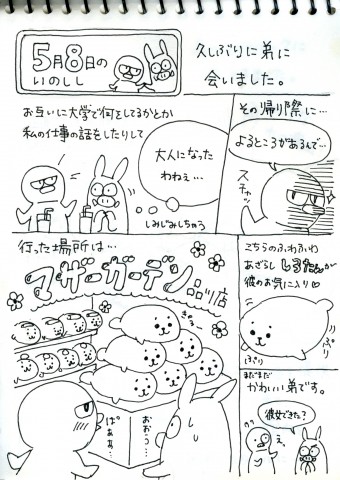 5月8日の
いのしし
久しぶりに弟に
会いました。
お互いに大学で何をしてるかとか
私の仕事の話をしたりして
大人になった
わねぇ…
しみじみしちゃう
その帰り際に…
よるところがあるんで…
スチャッ
行った場所は…
マザーガーデン
品川店
きゅる
ぱぁぁ…
おおう…
こちらのふわふわ
あざらし しろたんが
彼のお気に入り♡
ぷり
ぷり
まだまだ
かわいい弟です。
彼女できた?
え、